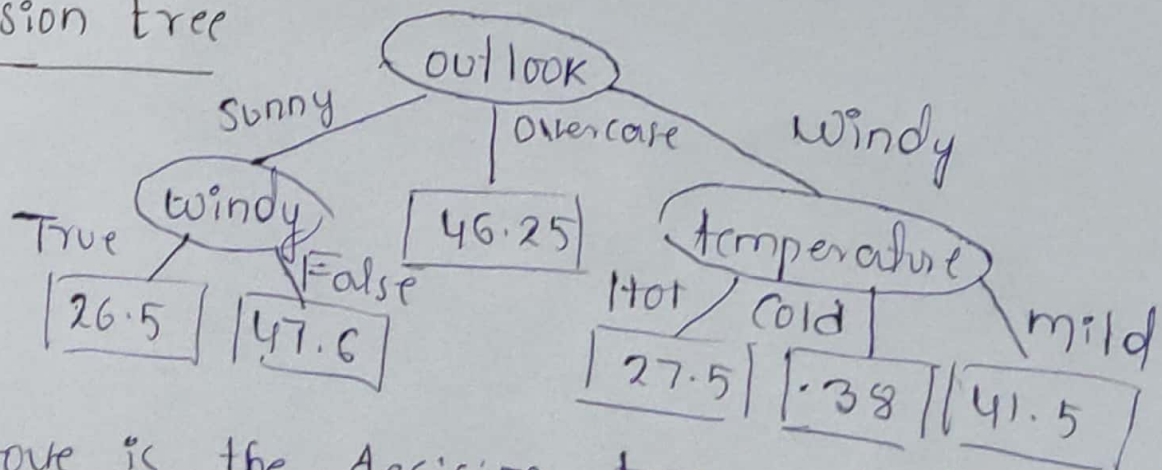 sion tree
outlook
Sunny
Overcase
Windy
windy
46.25
temperature
True
False
Hot
Cold
mild
26.5
47.6
27.5
.38
41.5
ove is the